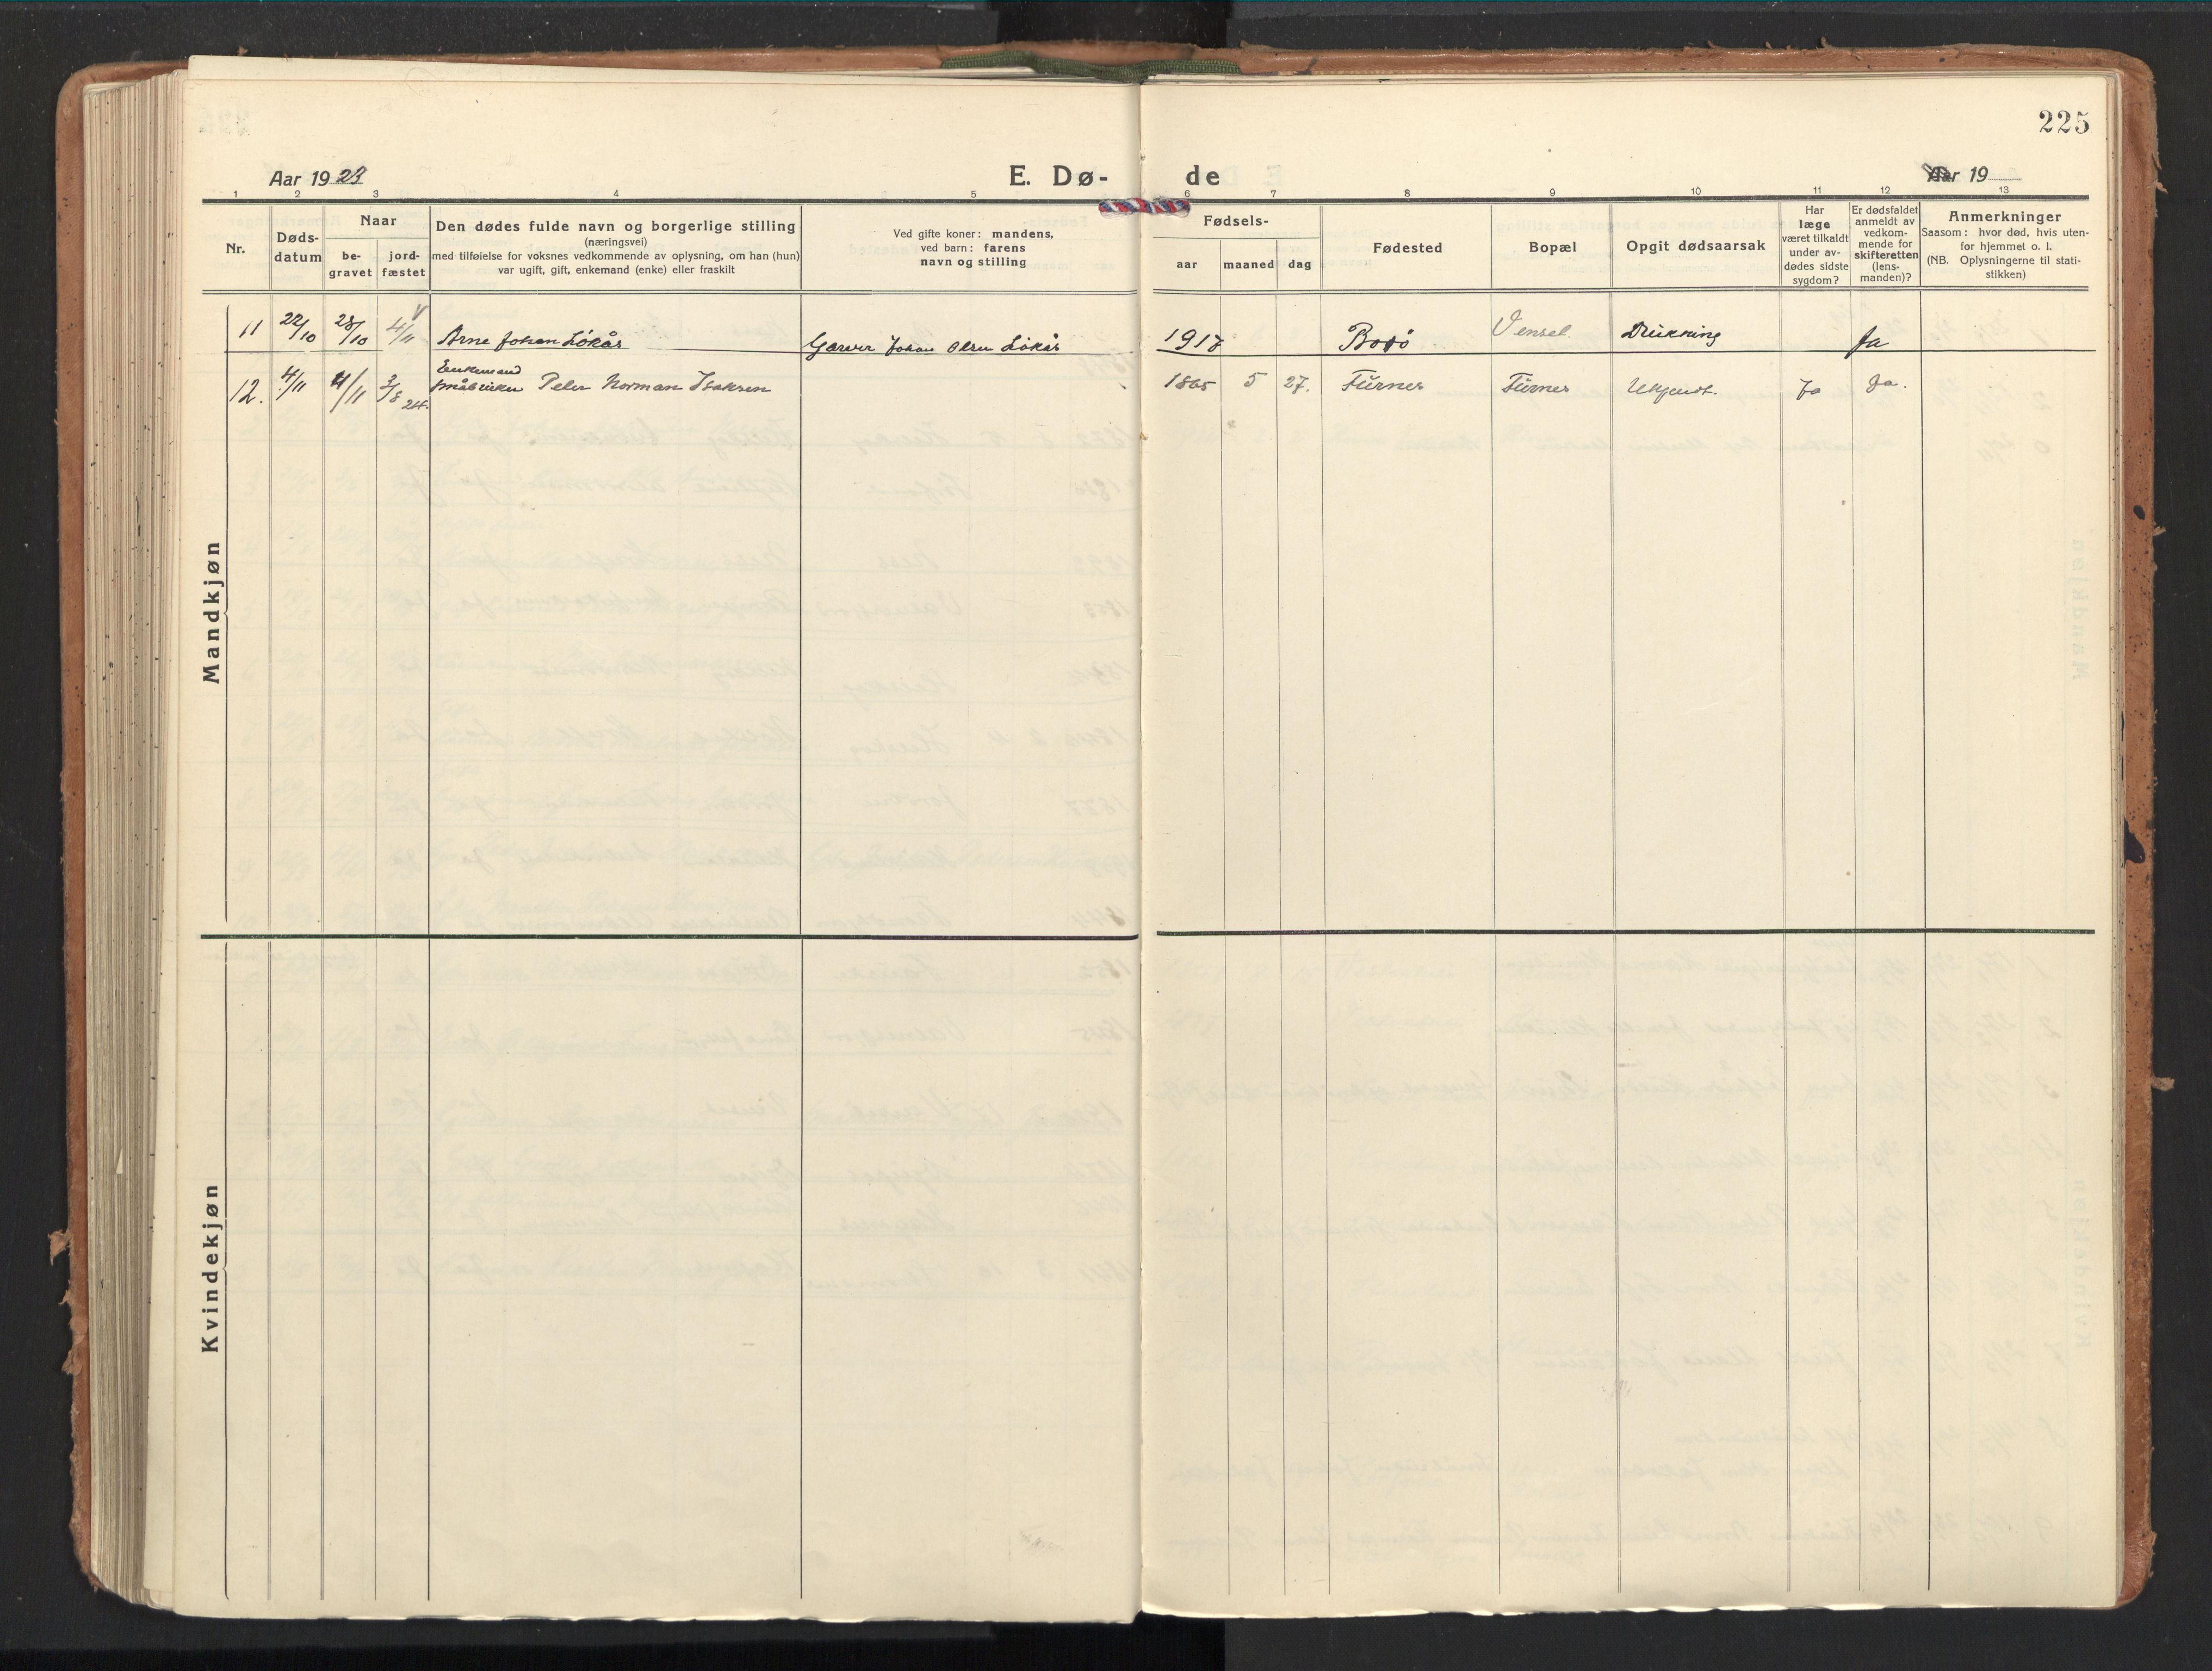 225
Aar 1923
E. Dø-
de
Aar 19
1 2 3 4 5 6 7 8 9 10 11 12 13
Nr.
Døds-
datum
Naar
be-
gravet
jord-
fæstet
Den dødes fulde navn og borgerlige stilling
(næringsvei)
med tilføielse for voksnes vedkommende av oplysning, om han (hun)
var ugift, gift, enkemand (enke) eller fraskilt
Ved gifte koner: mandens,
ved barn: farens
navn og stilling
Fødsels-
aar
maaned
dag
Fødested
Bopæl
Opgit dødsaarsak
Har
læge
været tilkaldt
under av-
dødes sidste
sygdom?
Er dødsfaldet
anmeldt av
vedkom-
mende for
skifteretten
(lens-
manden)?
Anmerkninger
Saasom: hvor død, hvis uten-
for hjemmet o. l.
(NB. Oplysningerne til stati-
stikken)
Mandkjøn
11 22/10 28/10 4/11 Arne Johan Løkås Garver Johan Olsen Løkås 1917 Bodø Vensel Drukning Ja
Enkemand
12. 4/11 4/11 3/8 24. småbruker Peder Norman Isaksen 1865 5 27. Furnes Furnes Ukjendt. Ja Ja.
Kvindekjøn